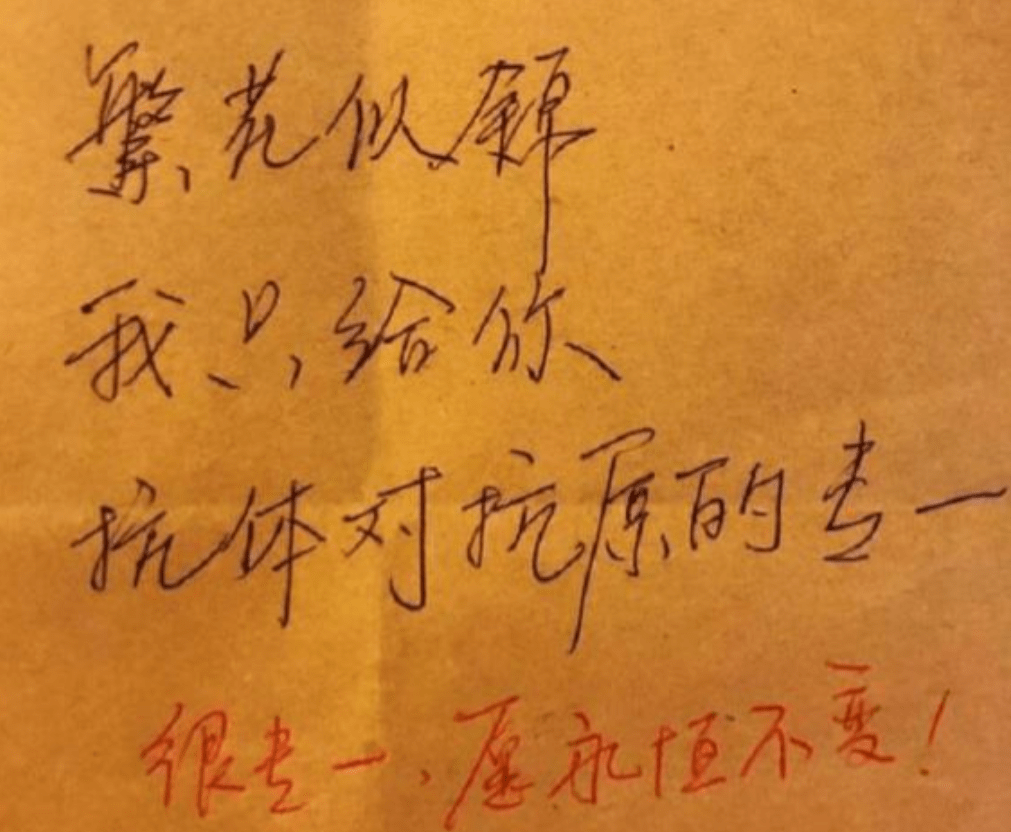 繁花似锦
我只给你
抗体对抗原的专一
很专一、愿永恒不变！